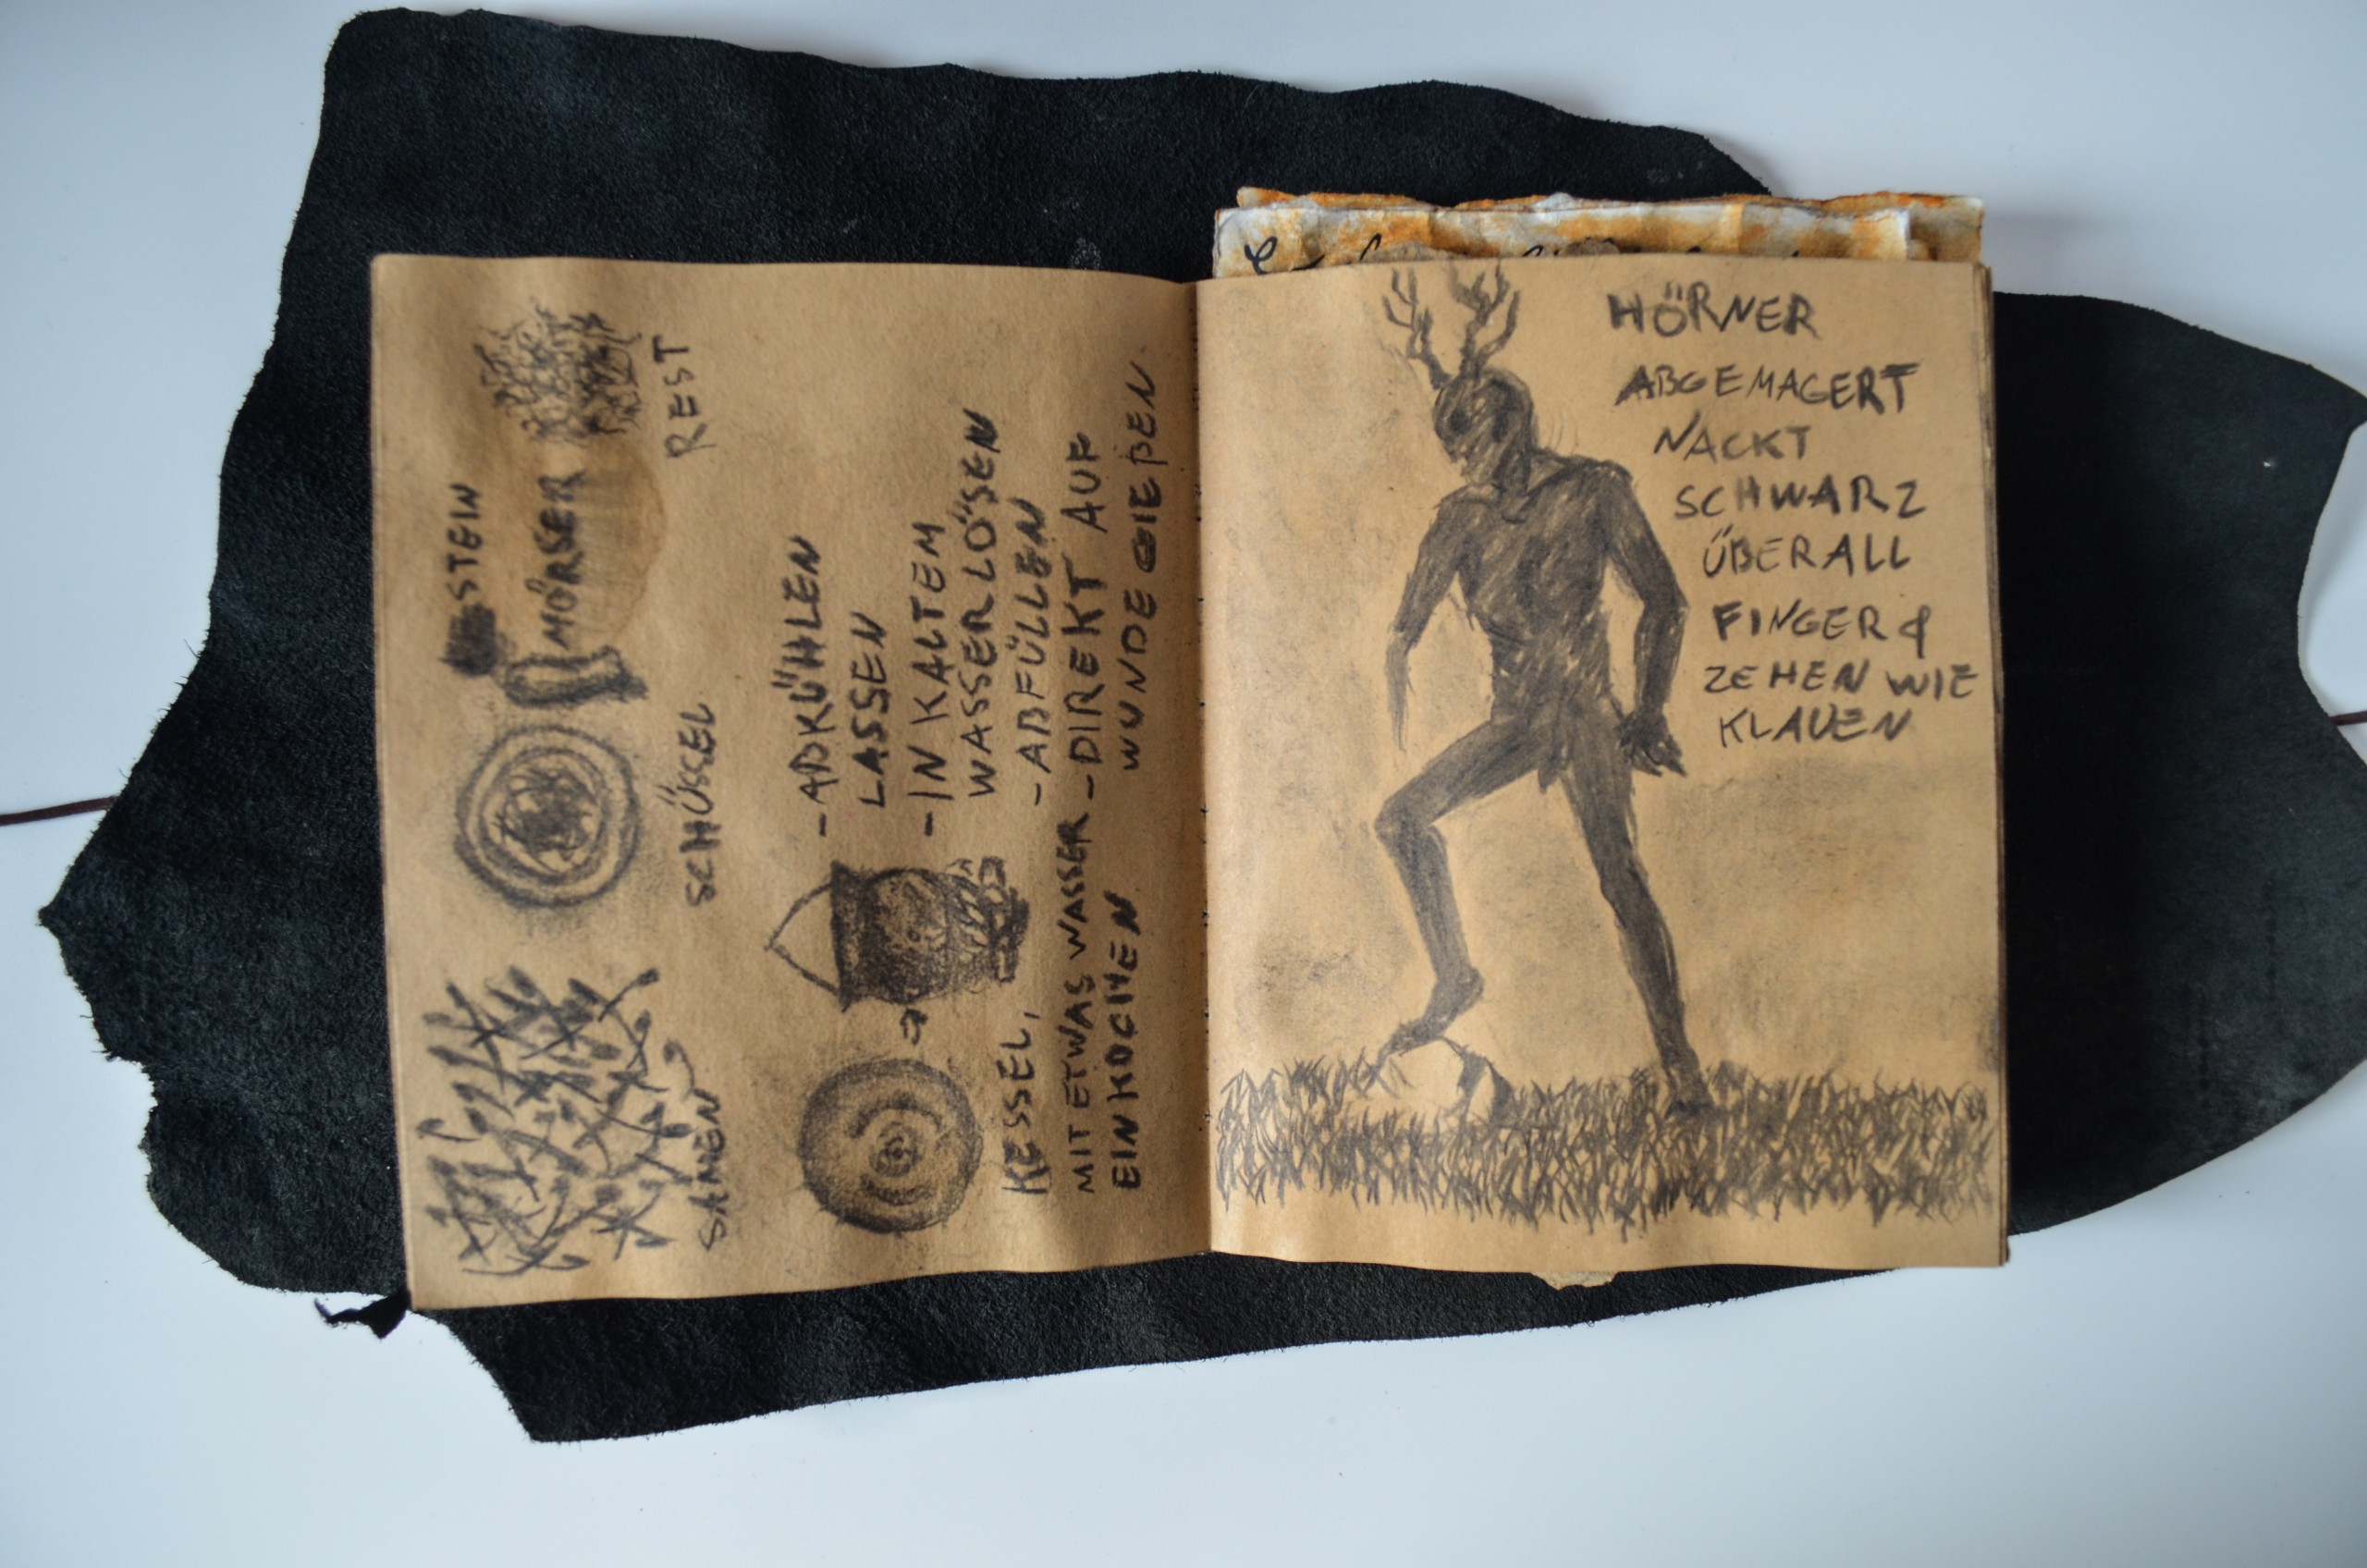 SAMEN
SCHÜSSEL
STEIN
MÖRSER
REST
KESSEL,
MIT ETWAS WASSER
EINKOCHEN
-ABKÜHLEN
LASSEN
-IN KALTEM
WASSER LÖSEN
-ABFÜLLEN
-DIREKT AUF
WUNDE GIEßEN
HÖRNER
ABGEMAGERT
NACKT
SCHWARZ
ÜBERALL
FINGER &
ZEHEN WIE
KLAUEN